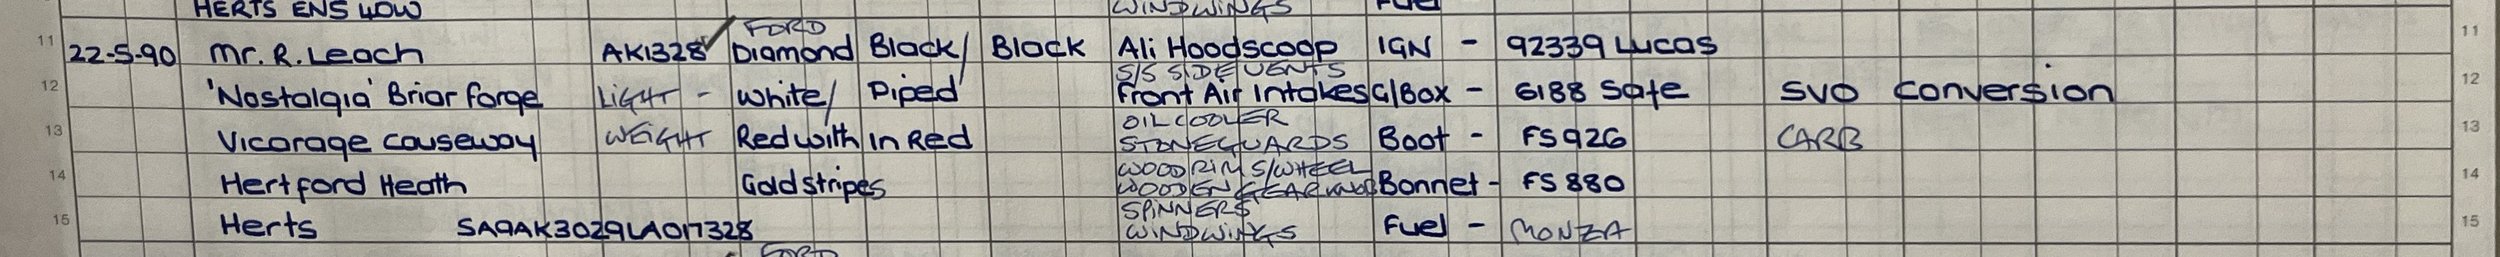 HERTS ENS 4DW WINDWINGS FUEL
FORD
11 22-5-90 Mr. R. Leach AK1328 Diamond Black/ Black Ali Hoodscoop IGN - 92339 Lucas 11
S/S SIDE VENTS
12 'Nostalgia' Briar Forge LIGHT - White/ Piped Front Air Intakes G/Box - 6188 Safe SVO Conversion 12
OIL COOLER
13 Vicarage Causeway WEIGHT Red with In Red STONEGUARDS Boot - FS926 CARB 13
WOODRIM S/WHEEL
14 Hertford Heath Gold stripes WOODEN GEAR KNOB Bonnet - FS 880 14
SPINNERS
15 Herts SA9AK3029LA017328 WINDWINGS Fuel - MONZA 15
FORD